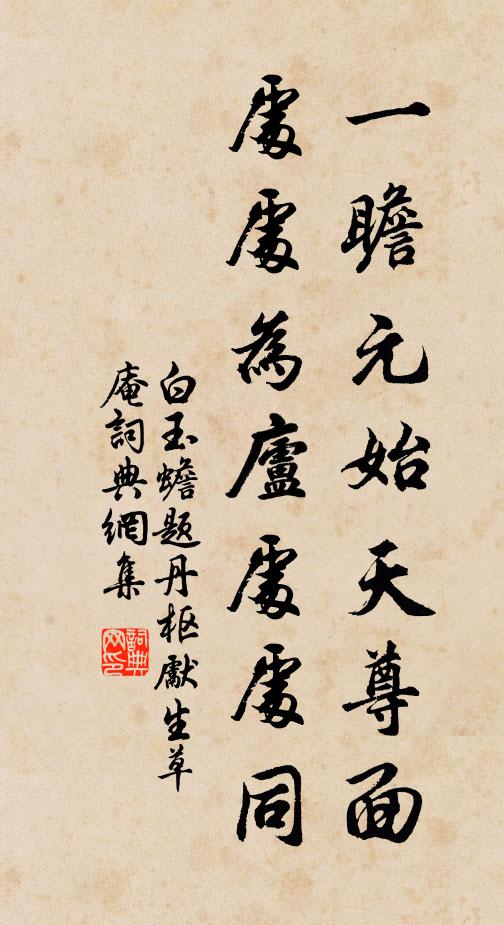 一瞻元始天尊面
處處為廬處處同
白玉蟾题丹枢獻生草
庵詞典網集
詞典网印